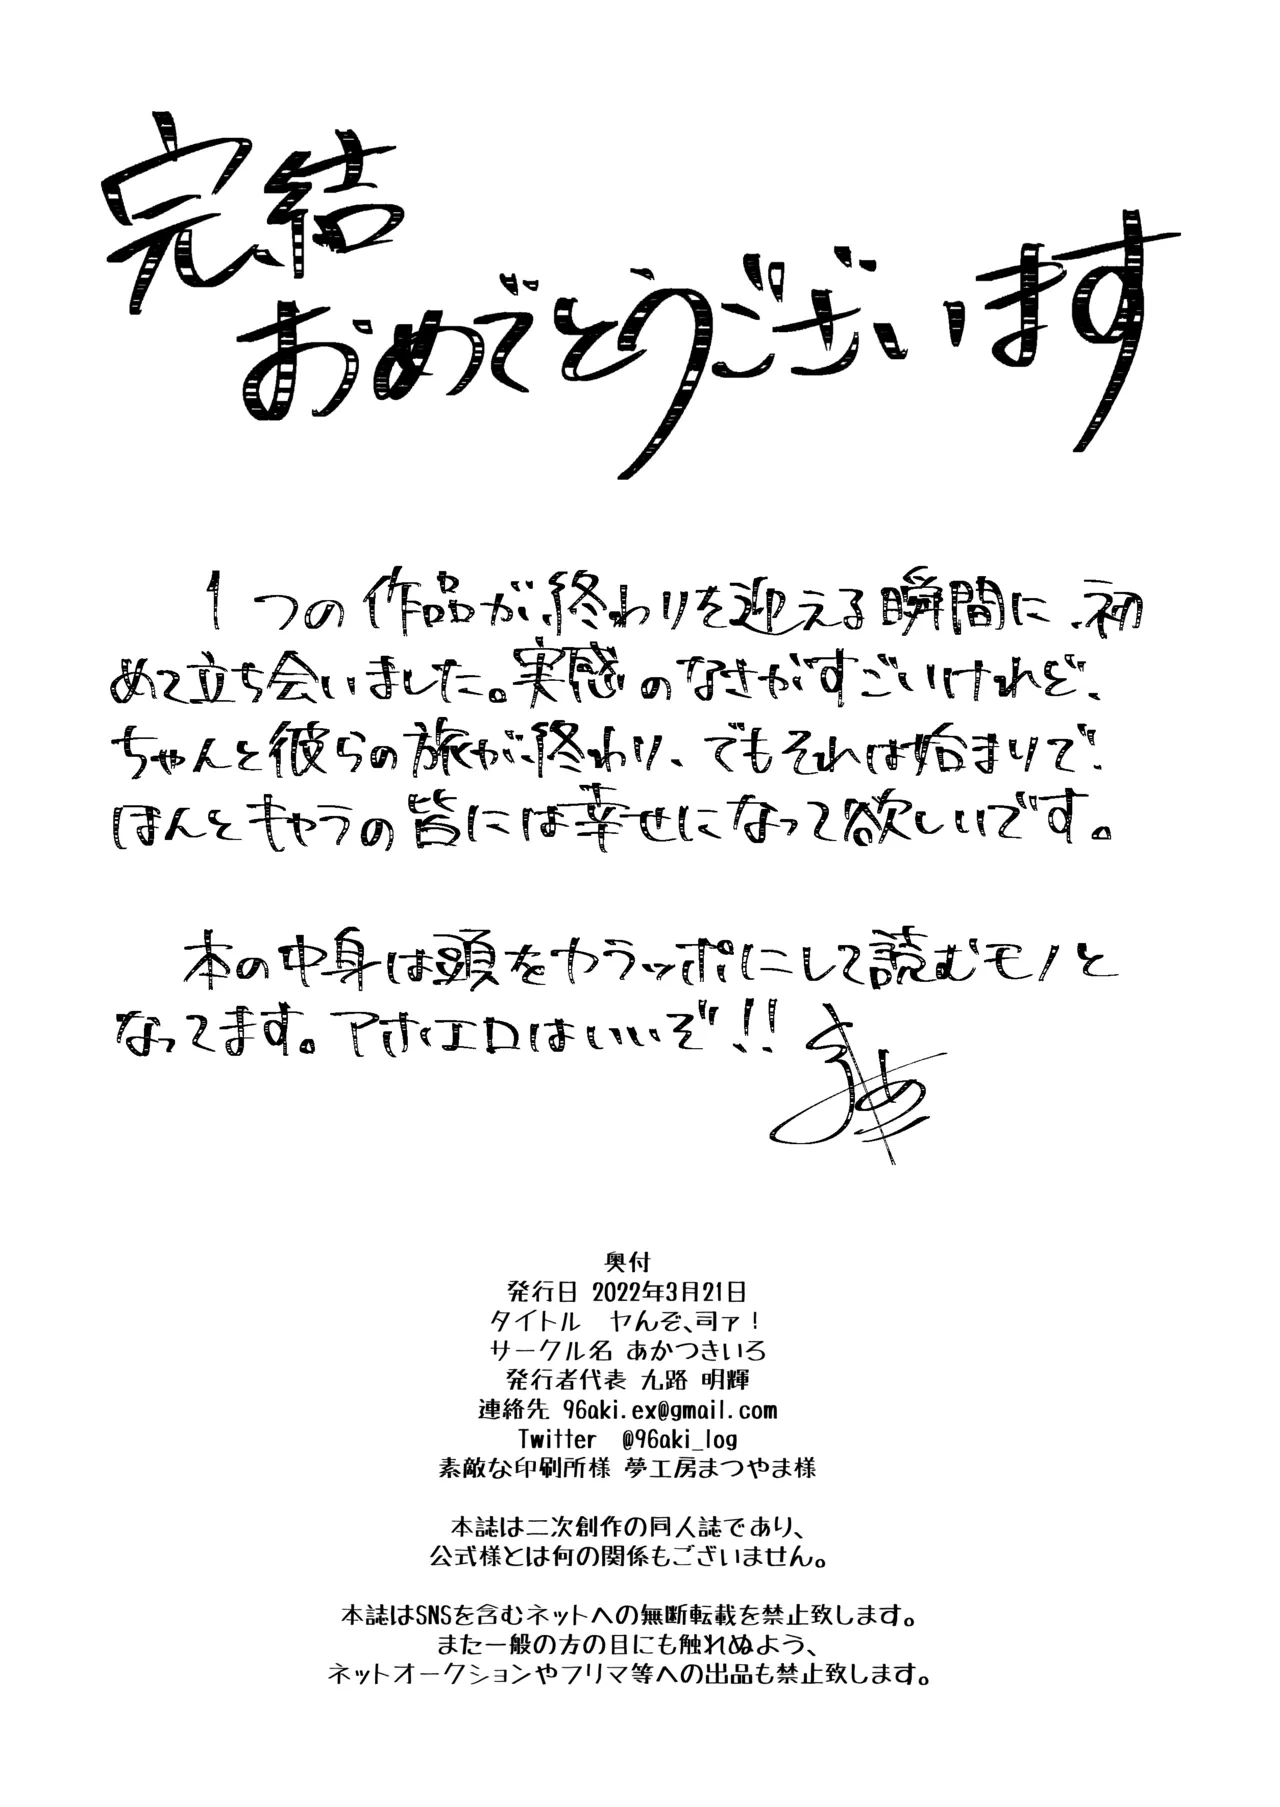 完結
おめでとうございます
1つの作品が、終わりを迎える瞬間に、初
めて立ち会いました。実感のなさがすごいけれど、
ちゃんと彼らの旅が、終わり、でもそれは始まりで!
ほんとキャラの皆には幸せになって欲しいです。
本の中身は頭をカラッポにして読むモノと
なってます。アホエロはいいぞ!!
奥付
発行日 2022年3月21日
タイトル　ヤんぞ、司ァ!
サークル名 あかつきいろ
発行者代表 九路 明輝
連絡先 96aki.ex@gmail.com
Twitter　@96aki_log
素敵な印刷所様 夢工房まつやま様
本誌は二次創作の同人誌であり、
公式様とは何の関係もございません。
本誌はSNSを含むネットへの無断転載を禁止致します。
また一般の方の目にも触れぬよう、
ネットオークションやフリマ等への出品も禁止致します。